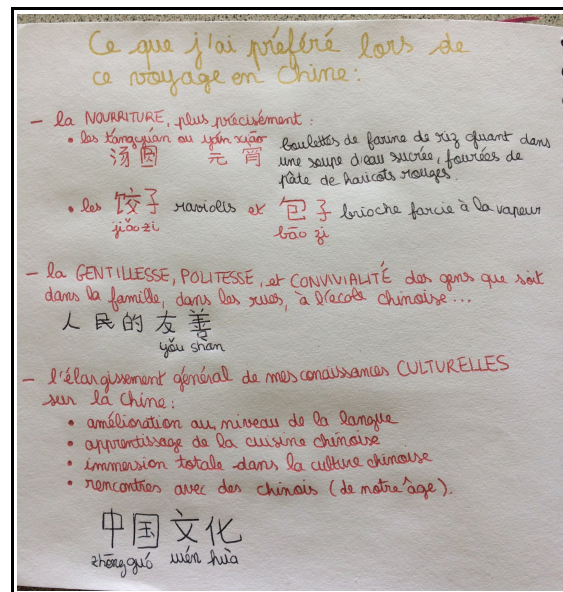 Ce que j'ai préféré lors de
ce voyage en Chine :
- la NOURRITURE, plus précisément :
• les tāngyuán ou yán xiāo boulettes de farine de riz flottant dans
汤圆 元宵 une soupe d'eau sucrée, fourrées de
pâte de haricots rouges.
• les 饺子 raviolis et 包子 brioche farcie à la vapeur
jiǎo zi bāo zi
- la GENTILLESSE, POLITESSE, et CONVIVIALITÉ des gens que soit
dans la famille, dans les rues, à l'école chinoise...
人民的友善
yǒu shàn
- l'élargissement général de mes conaissances CULTURELLES
sur la Chine :
• amélioration au niveau de la langue
• apprentissage de la cuisine chinoise
• immersion totale dans la culture chinoise
• rencontres avec des chinois (de notre âge).
中国文化
zhōng guó wén huà